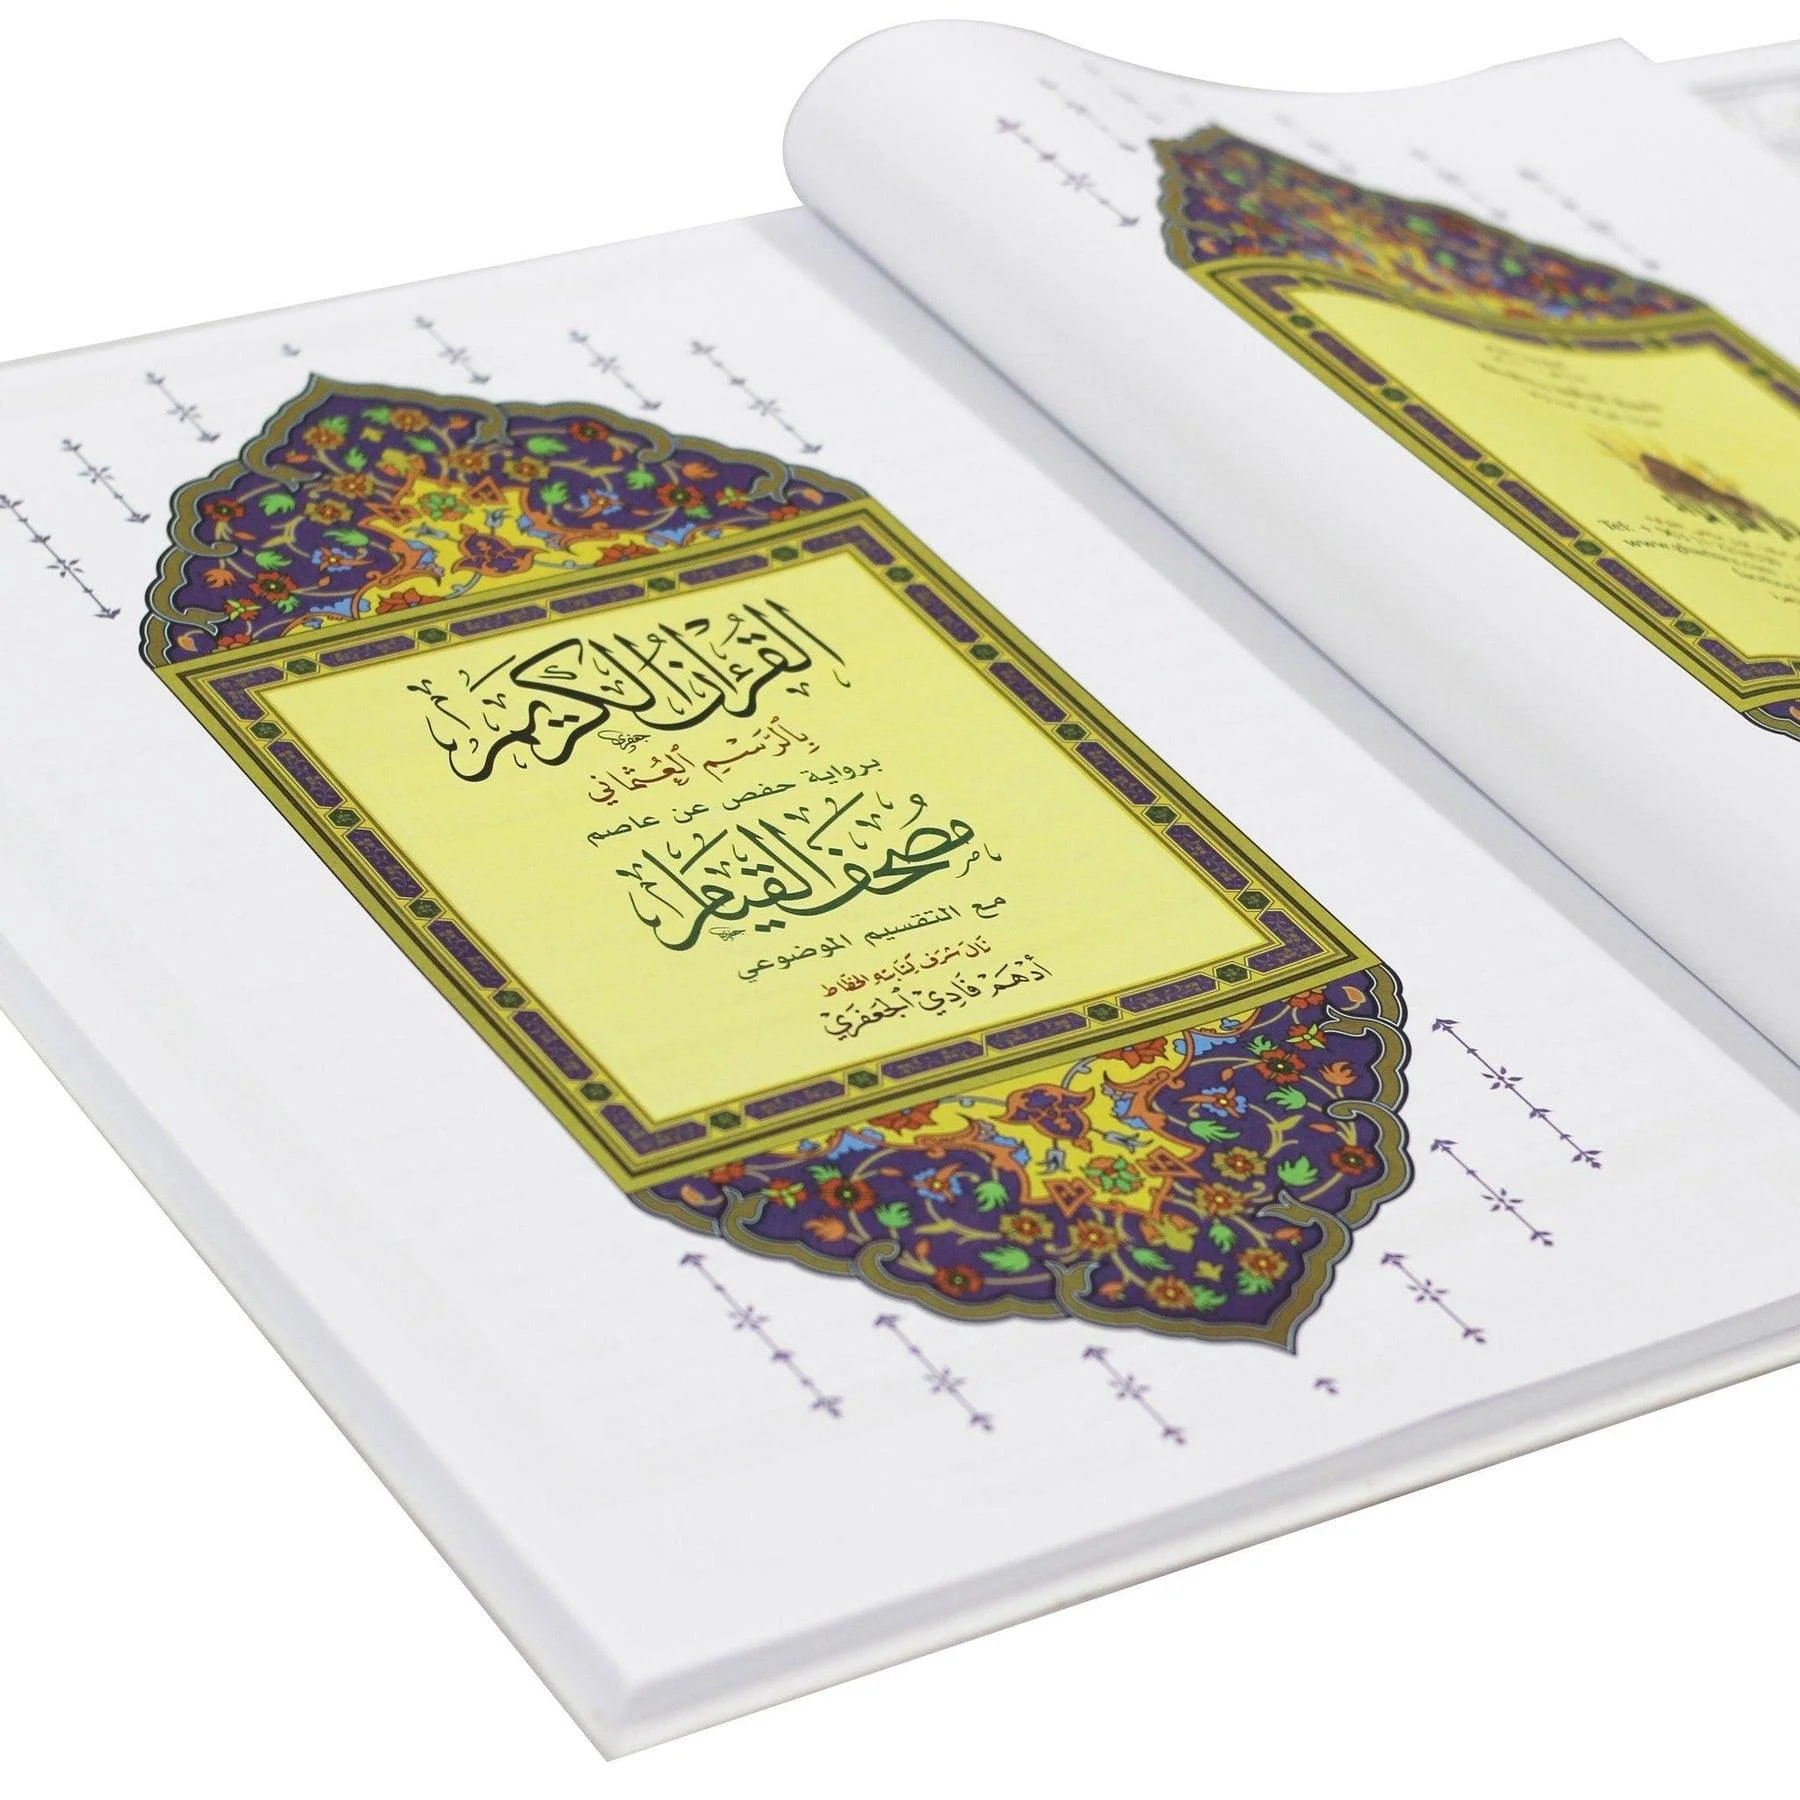 القرءان الكريم
جعفري
بِالرَّسْمِ العُثْمَاني
برواية حفص عن عاصم
مصحف القيام
جعفري
مع التقسيم الموضوعي
نال شرف كتابته الخطاط
أدهم فادي الجعفري
Tel:
www.